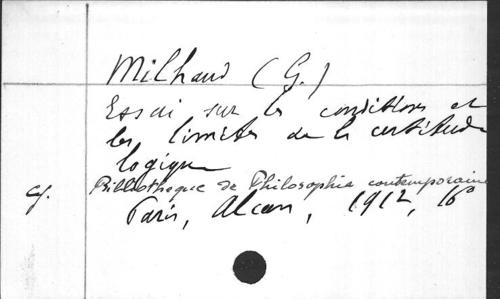 Milhaud (G.)
Essai sur les conditions et
les limites de la certitude
logique
cf. Bibliothèque de Philosophie contemporaine
Paris, Alcan, 1912, 16°